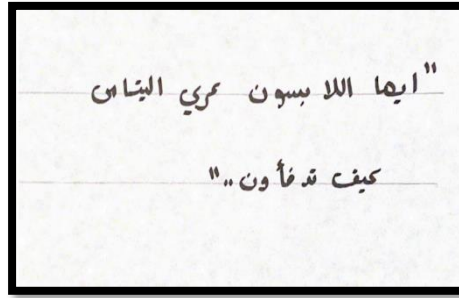 "ايها اللابسون عري اليتامى
كيف تدفأون.."